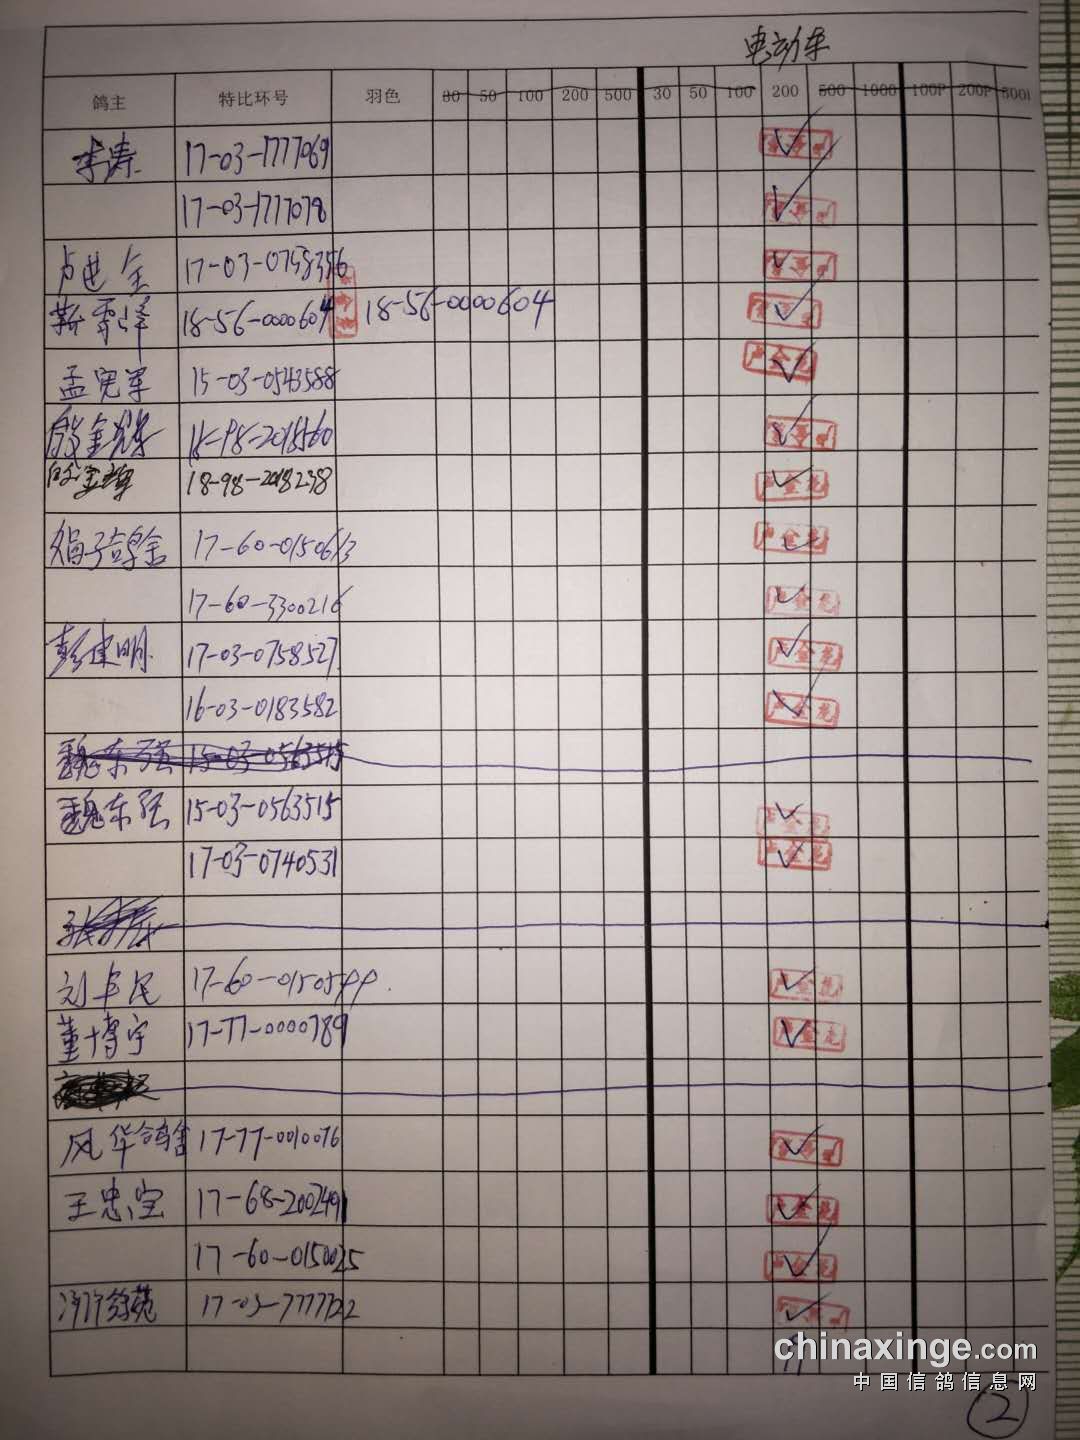 电动车
鸽主 特比环号 羽色 30 50 100 200 500 30 50 100 200 500 1000 100P 200P 300P
李涛 17-03-1777069
17-03-1777078
卢进全 17-03-0758356
靳雪峰 18-56-0000604 18-56-0000604
孟宪军 15-03-0543588
殷金辉 18-98-2018560
殷金辉 18-98-2018238
娟子鸽舍 17-60-0150613
17-60-3300216
彭建明 17-03-0758527
16-03-0183582
魏东强 15-03-0563515
魏东强 15-03-0563515
17-03-0740531
刘卓民 17-60-0150544
董博宇 17-77-0000789
风华鸽舍 17-77-0010076
王忠宝 17-68-2002491
17-60-0150025
17-03-7777722
chinaxinge.com
中国信鸽信息网
2